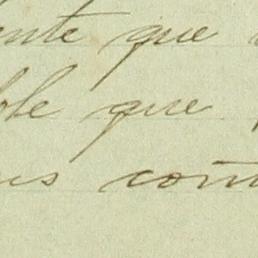 ente que
ble que
us cont